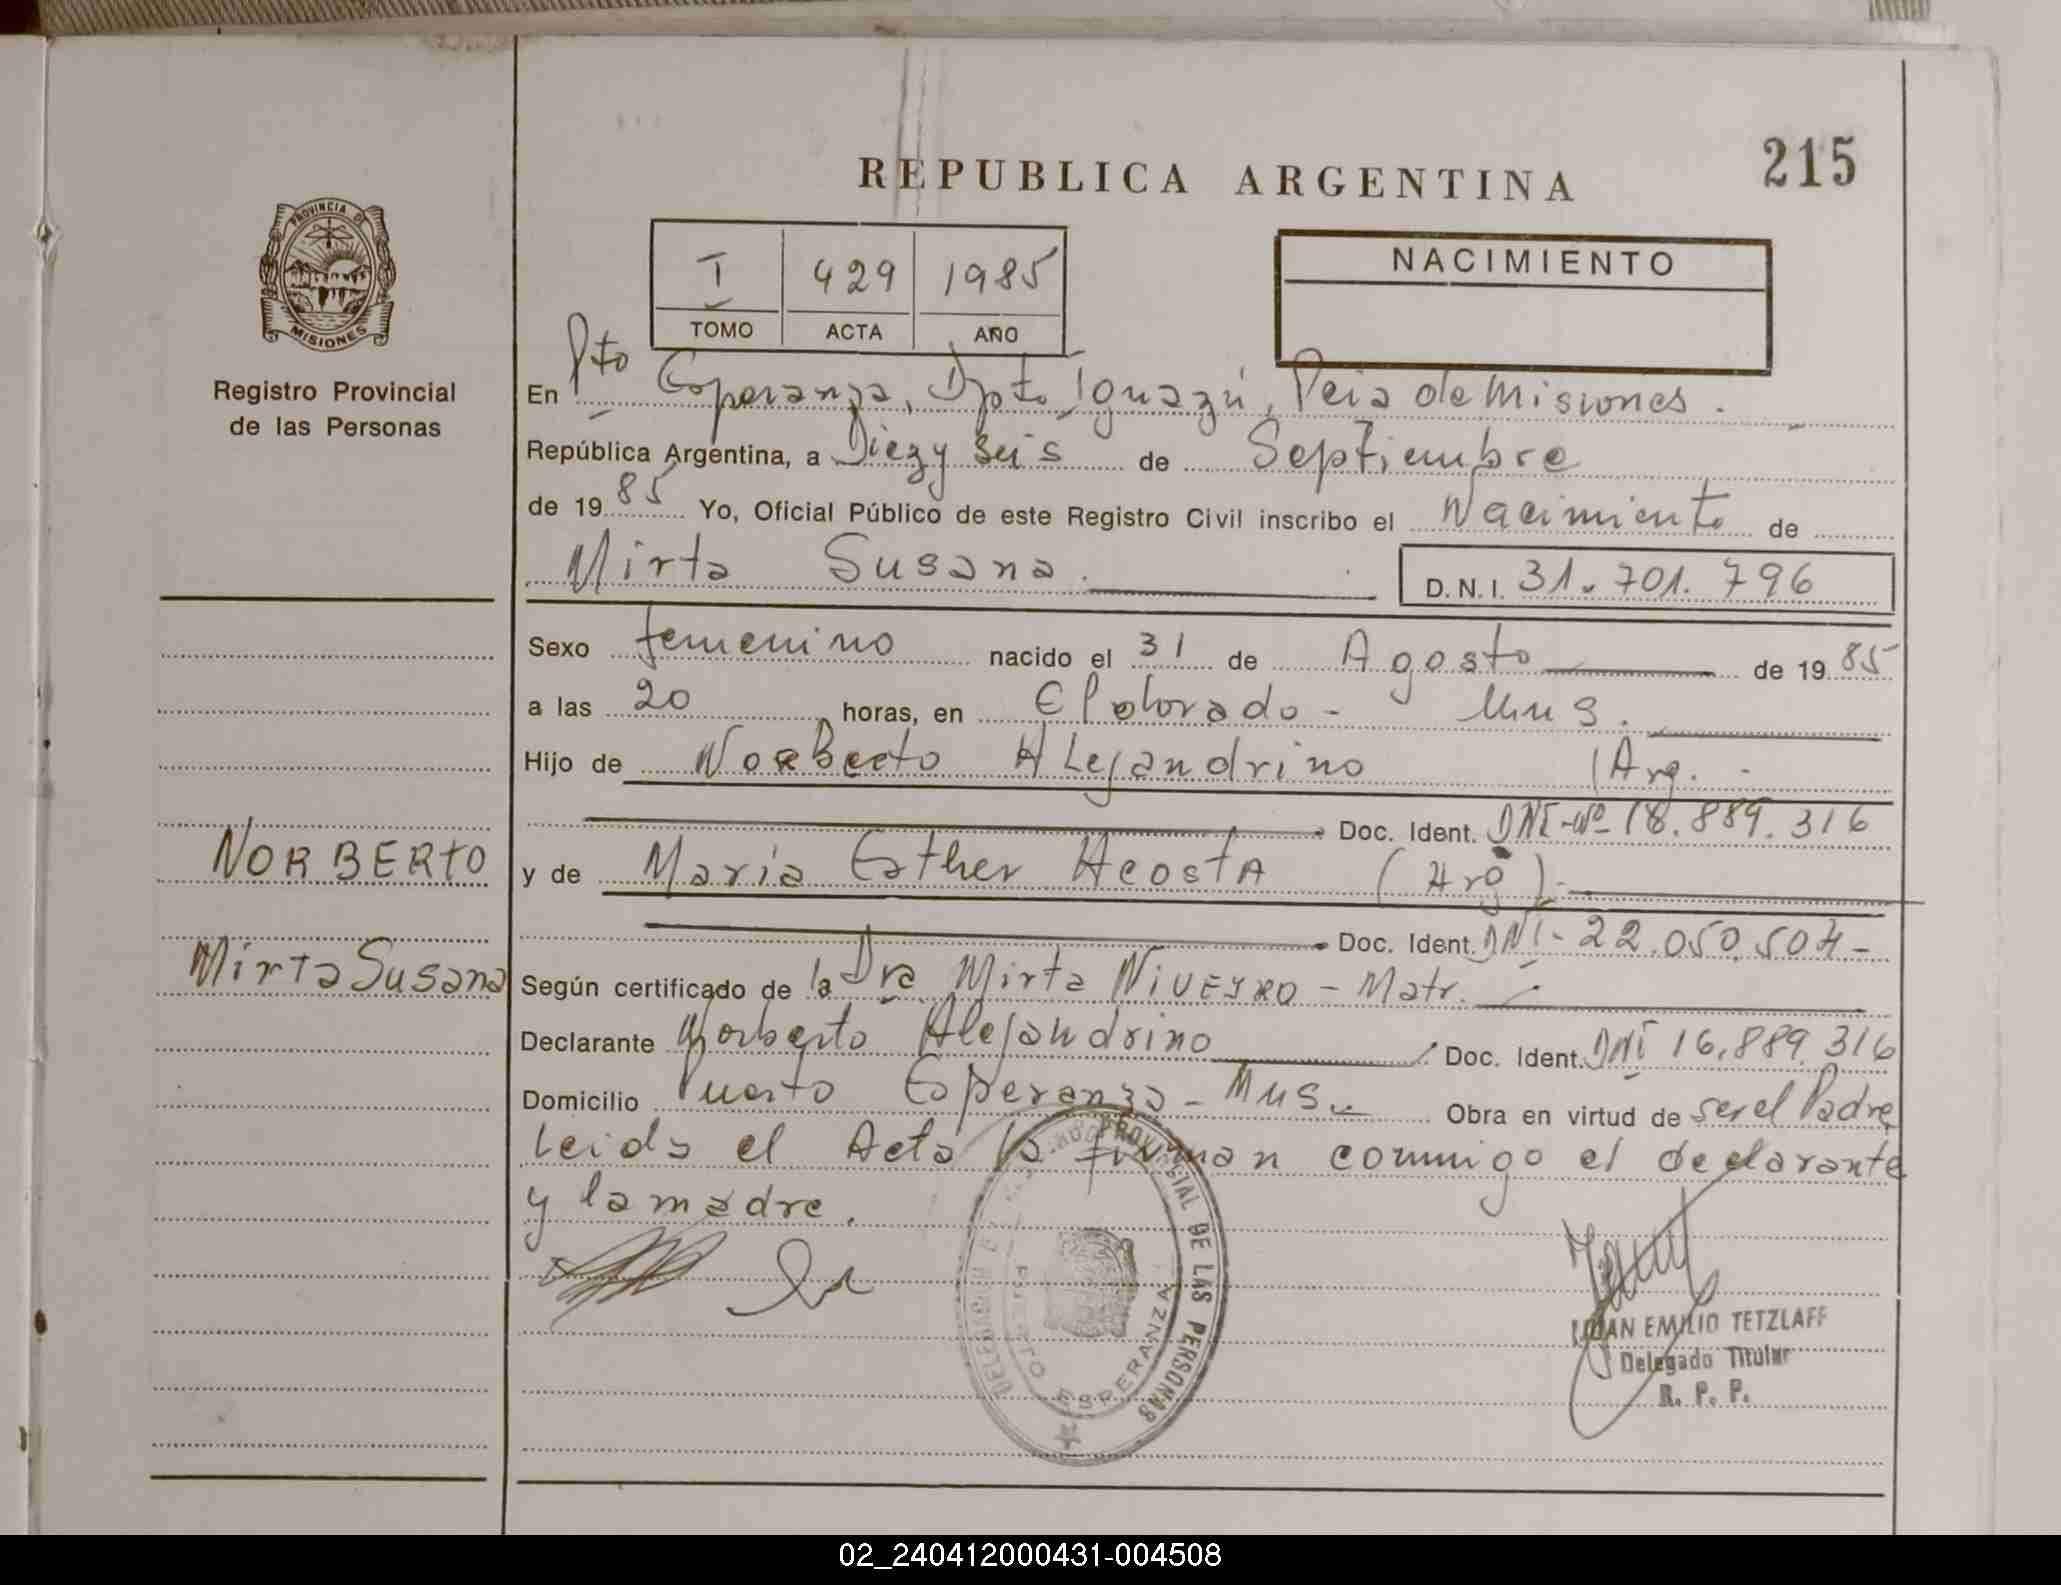 215
REPUBLICA ARGENTINA
PROVINCIA DE
MISIONES
Registro Provincial
de las Personas
I 429 1985
TOMO ACTA AÑO
NACIMIENTO
En Pto Esperanza, Dpto Iguazú, Pcia de Misiones.
República Argentina, a Diez y Seis de Septiembre
de 1985 Yo, Oficial Público de este Registro Civil inscribo el Nacimiento de
Mirta Susana.
D.N.I. 31.701.796
Sexo femenino nacido el 31 de Agosto de 1985
a las 20 horas, en Eldorado - Mns.
Hijo de Norberto Alejandrino (Arg.
Doc. Ident. DNI-Nº 18.889.316
NORBERTO
y de Maria Esther Acosta (Arg).
Doc. Ident. DNI- 22.050.504-
Mirta Susana
Según certificado de la Dra Mirta NIVEYRO - Matr.
Declarante Norberto Alejandrino Doc. Ident. DNI 16.889.316
Domicilio Puerto Esperanza - Mns. Obra en virtud de ser el Padre
Leida el Acta la firman conmigo el declarante
y la madre.
PROVINCIAL DE LAS PERSONAS
ESPERANZA
JUAN EMILIO TETZLAFF
Delegado Titular
R. P. P.
02_240412000431-004508